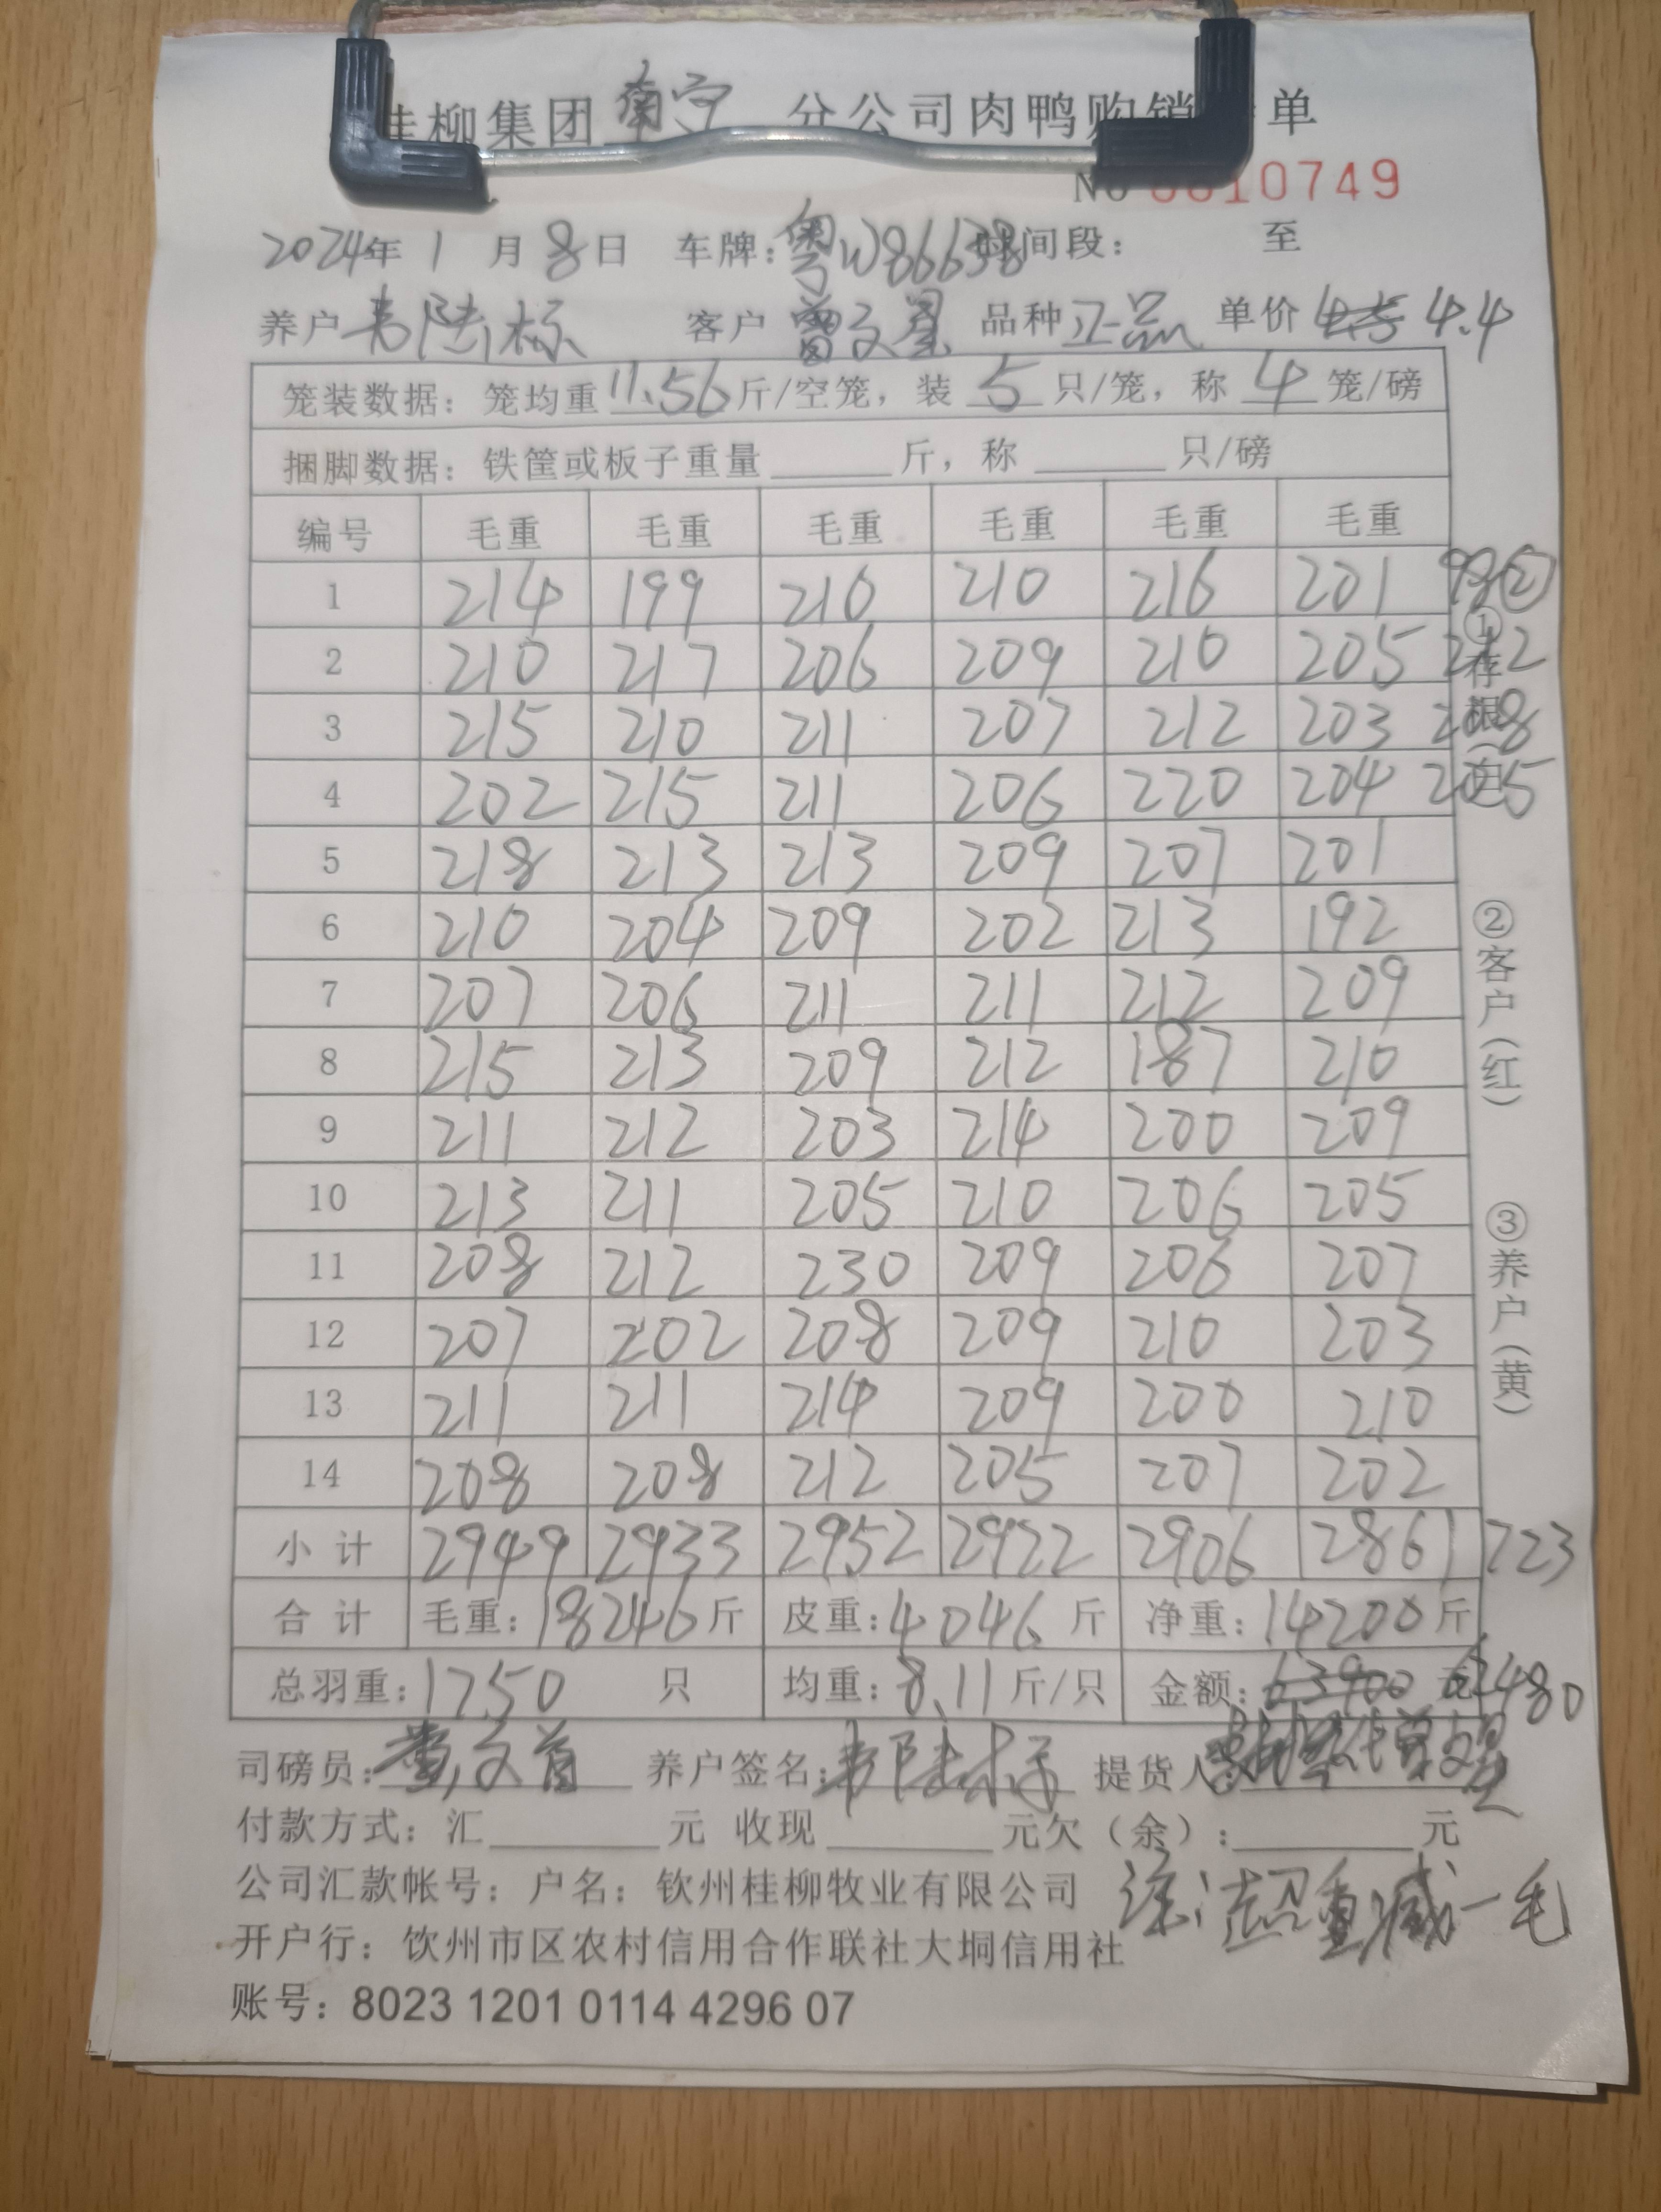 桂柳集团南宁分公司肉鸭购销单
No 0010749
2024年1月8日 车牌:粤W86638 时间段: 至
养户韦陆标 客户曾文星 品种正品 单价 4.4
笼装数据:笼均重11.56斤/空笼,装5只/笼,称4笼/磅
捆脚数据:铁筐或板子重量______斤,称______只/磅
编号 毛重 毛重 毛重 毛重 毛重 毛重
1 214 199 210 210 216 201 98②
2 210 217 206 209 210 205 212
3 215 210 211 207 212 203 208
4 202 215 211 206 220 204 205
5 218 213 213 209 207 201
6 210 204 209 202 213 192
7 207 206 211 211 212 209
8 215 213 209 212 187 210
9 211 212 203 214 200 209
10 213 211 205 210 206 205
11 208 212 230 209 206 207
12 207 202 208 209 210 203
13 211 211 214 209 200 210
14 208 208 212 205 207 202
小计 2949 2933 2952 2922 2906 2861 723
合计 毛重:18246斤 皮重:4046斤 净重:14200斤
总羽重:1750 只 均重:8.11斤/只 金额:63900 元 62480
①存根(白) ②客户(红) ③养户(黄)
司磅员: 养户签名:韦陆标 提货人:
付款方式:汇______元 收现______元欠(余):______元
公司汇款帐号:户名:钦州桂柳牧业有限公司
开户行:饮州市区农村信用合作联社大垌信用社
涂:超重减一毛
账号:8023 1201 0114 4296 07